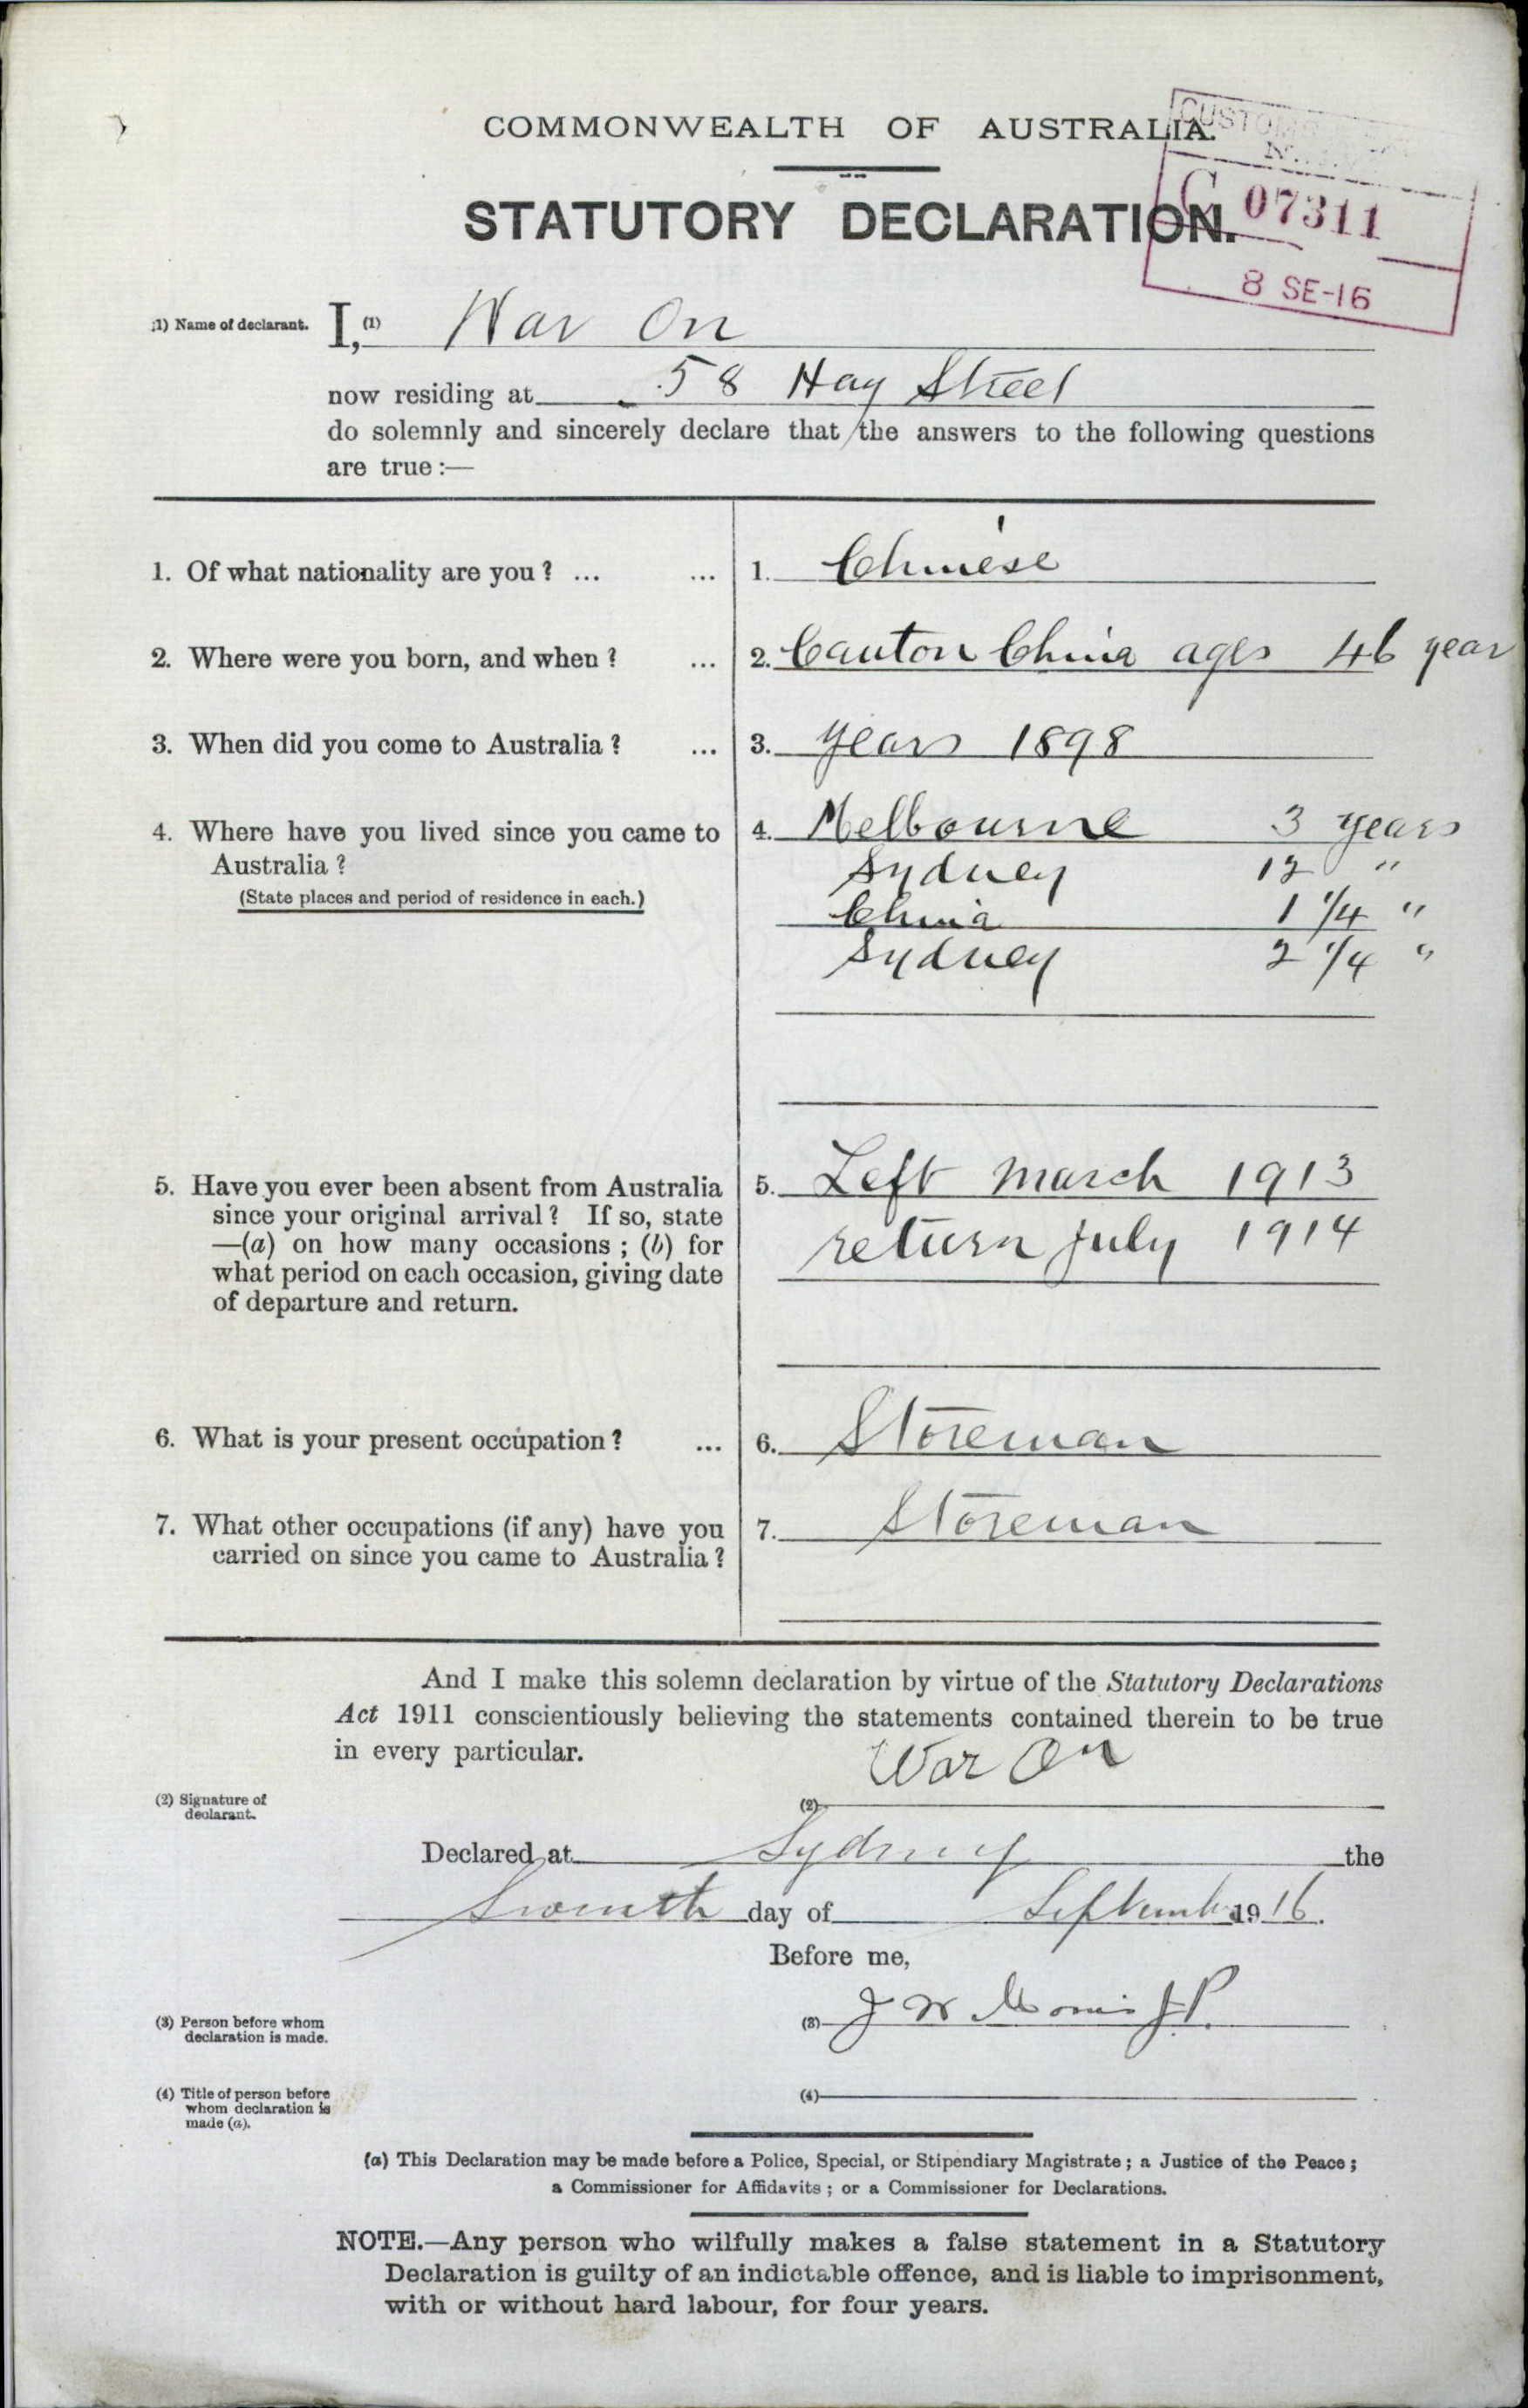 COMMONWEALTH OF AUSTRALIA.
CUSTOMS
STATUTORY DECLARATION.
C 07311
8 SE-16
(1) Name of declarant. I, (1) War On
now residing at 58 Hay Street
do solemnly and sincerely declare that the answers to the following questions
are true :—
1. Of what nationality are you ? ... ... 1. Chinese
2. Where were you born, and when ? ... 2. Canton China ages 46 year
3. When did you come to Australia ? ... 3. years 1898
4. Where have you lived since you came to 4. Melbourne 3 years
Australia ? Sydney 12 "
(State places and period of residence in each.) China 1 1/4 "
Sydney 2 1/4 "
5. Have you ever been absent from Australia 5. Left march 1913
since your original arrival ? If so, state
—(a) on how many occasions ; (b) for return july 1914
what period on each occasion, giving date
of departure and return.
6. What is your present occupation ? ... 6. Storeman
7. What other occupations (if any) have you 7. Storeman
carried on since you came to Australia ?
And I make this solemn declaration by virtue of the Statutory Declarations
Act 1911 conscientiously believing the statements contained therein to be true
in every particular.
War On
(2) Signature of
declarant. (2)
Declared at Sydney the
day of September 1916.
Before me,
(3) Person before whom
declaration is made. (3) J W Morris J.P.
(4) Title of person before
whom declaration is
made (a). (4)
(a) This Declaration may be made before a Police, Special, or Stipendiary Magistrate ; a Justice of the Peace ;
a Commissioner for Affidavits ; or a Commissioner for Declarations.
NOTE.—Any person who wilfully makes a false statement in a Statutory
Declaration is guilty of an indictable offence, and is liable to imprisonment,
with or without hard labour, for four years.